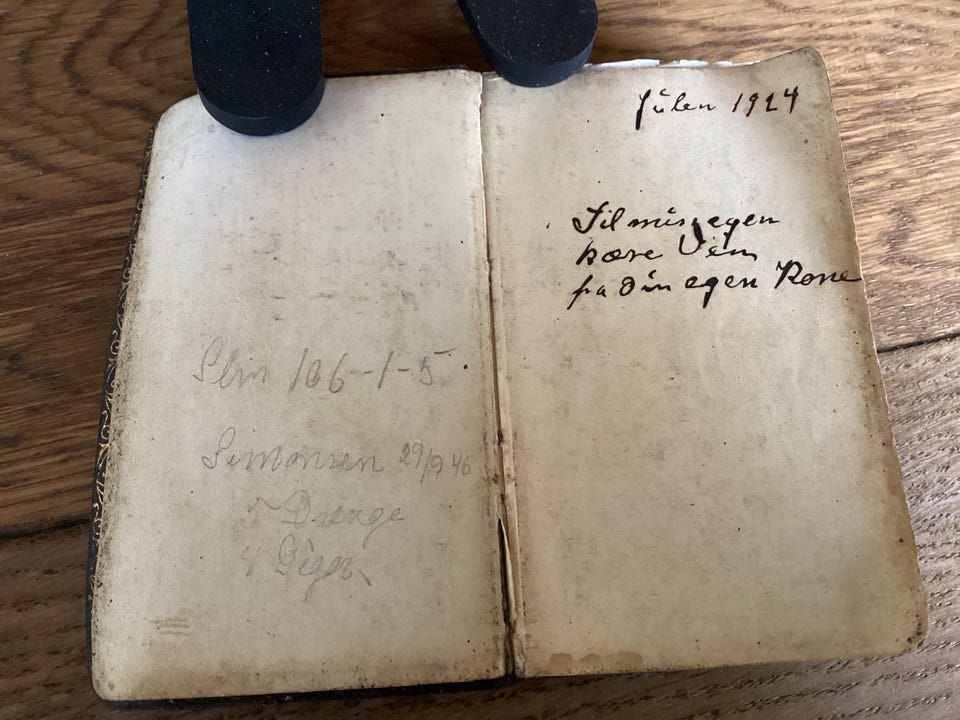 Slm 106-1-5
Simonsen 29/9 46
5 Drenge
4 Piger
Julen 1924
Til min egen
kære Ven
fra din egen Kone